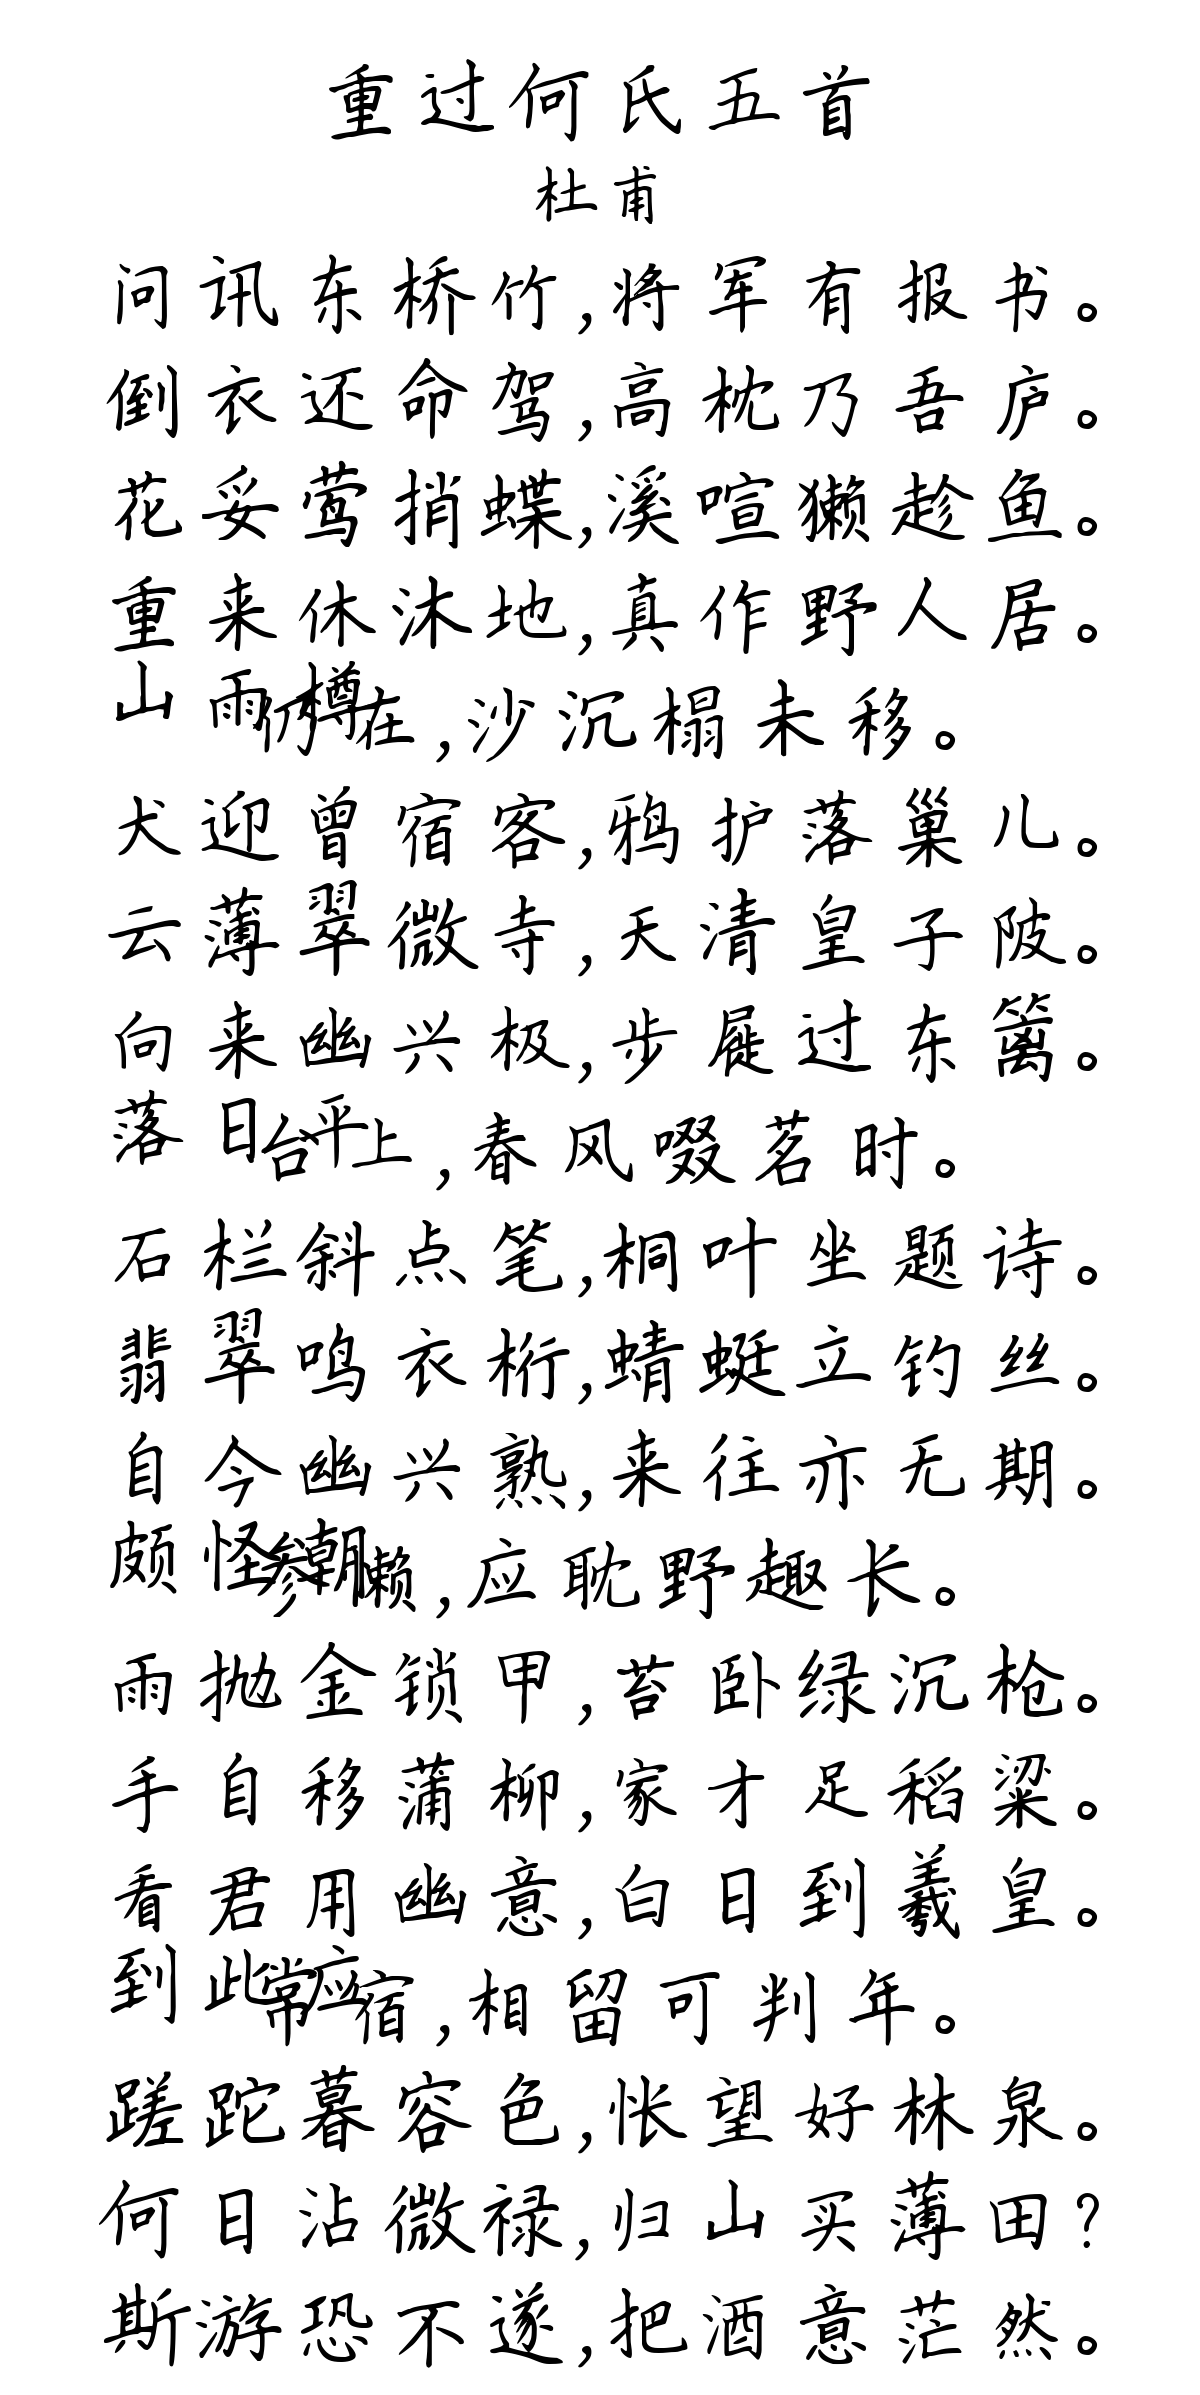 重过何氏五首
杜甫
问讯东桥竹,将军有报书。
倒衣还命驾,高枕乃吾庐。
花妥莺捎蝶,溪喧獭趁鱼。
重来休沐地,真作野人居。
山雨樽仍在,沙沉榻未移。
犬迎曾宿客,鸦护落巢儿。
云薄翠微寺,天清皇子陂。
向来幽兴极,步屣过东篱。
落日平台上,春风啜茗时。
石栏斜点笔,桐叶坐题诗。
翡翠鸣衣桁,蜻蜓立钓丝。
自今幽兴熟,来往亦无期。
颇怪朝参懒,应耽野趣长。
雨抛金锁甲,苔卧绿沉枪。
手自移蒲柳,家才足稻粱。
看君用幽意,白日到羲皇。
到此应常宿,相留可判年。
蹉跎暮容色,怅望好林泉。
何日沾微禄,归山买薄田?
斯游恐不遂,把酒意茫然。